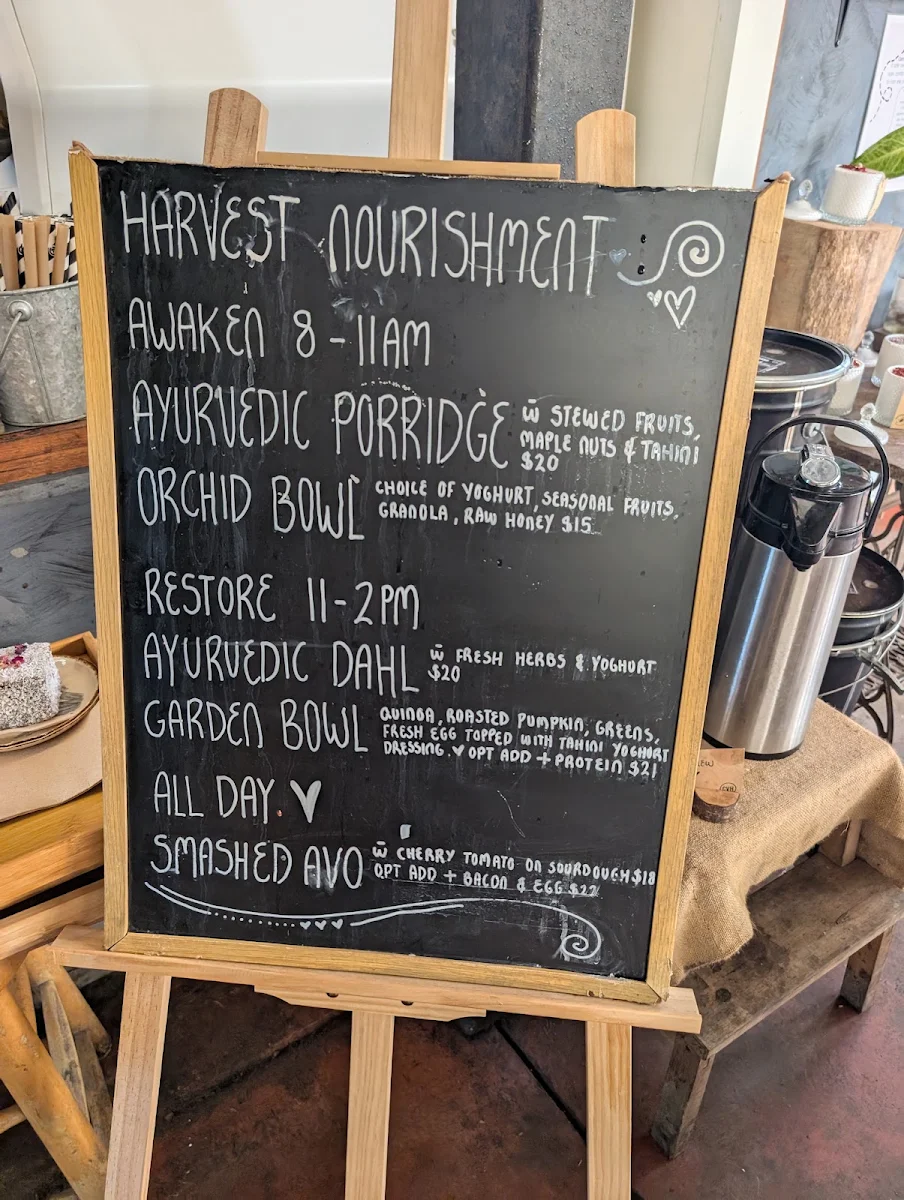 HARVEST NOURISHMENT
AWAKEN 8-11AM
AYURVEDIC PORRIDGE w̄ STEWED FRUITS,
MAPLE NUTS & TAHINI
$20
ORCHID BOWL CHOICE OF YOGHURT, SEASONAL FRUITS,
GRANOLA, RAW HONEY $15
RESTORE 11-2PM
AYURVEDIC DAHL w̄ FRESH HERBS & YOGHURT
$20
GARDEN BOWL QUINOA, ROASTED PUMPKIN, GREENS,
FRESH EGG TOPPED WITH TAHINI YOGHURT
DRESSING. ♥ OPT ADD + PROTEIN $21
ALL DAY ♥
SMASHED AVO w̄ CHERRY TOMATO ON SOURDOUGH $18
OPT ADD + BACON & EGG $22